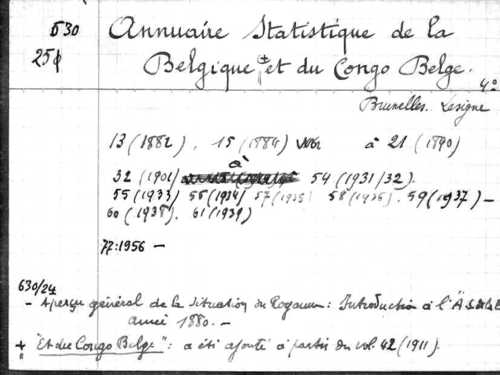 630 Annuaire Statistique de la
25ϕ Belgique + et du Congo Belge.
4°
Bruxelles. Lesigne
13 (1882), 15 (1884) à 21 (1890)
32 (1901) à 54 (1931/32).
55 (1933) 56 (1934) 57 (1935) 58 (1936). 59 (1937) -
60 (1938). 61 (1939)
77:1956 -
630/24
- Aperçu général de la situation du Royaume: Introduction à l'A
année 1880. -
+ "Et du Congo Belge": a été ajouté à partir du vol. 42 (1911).